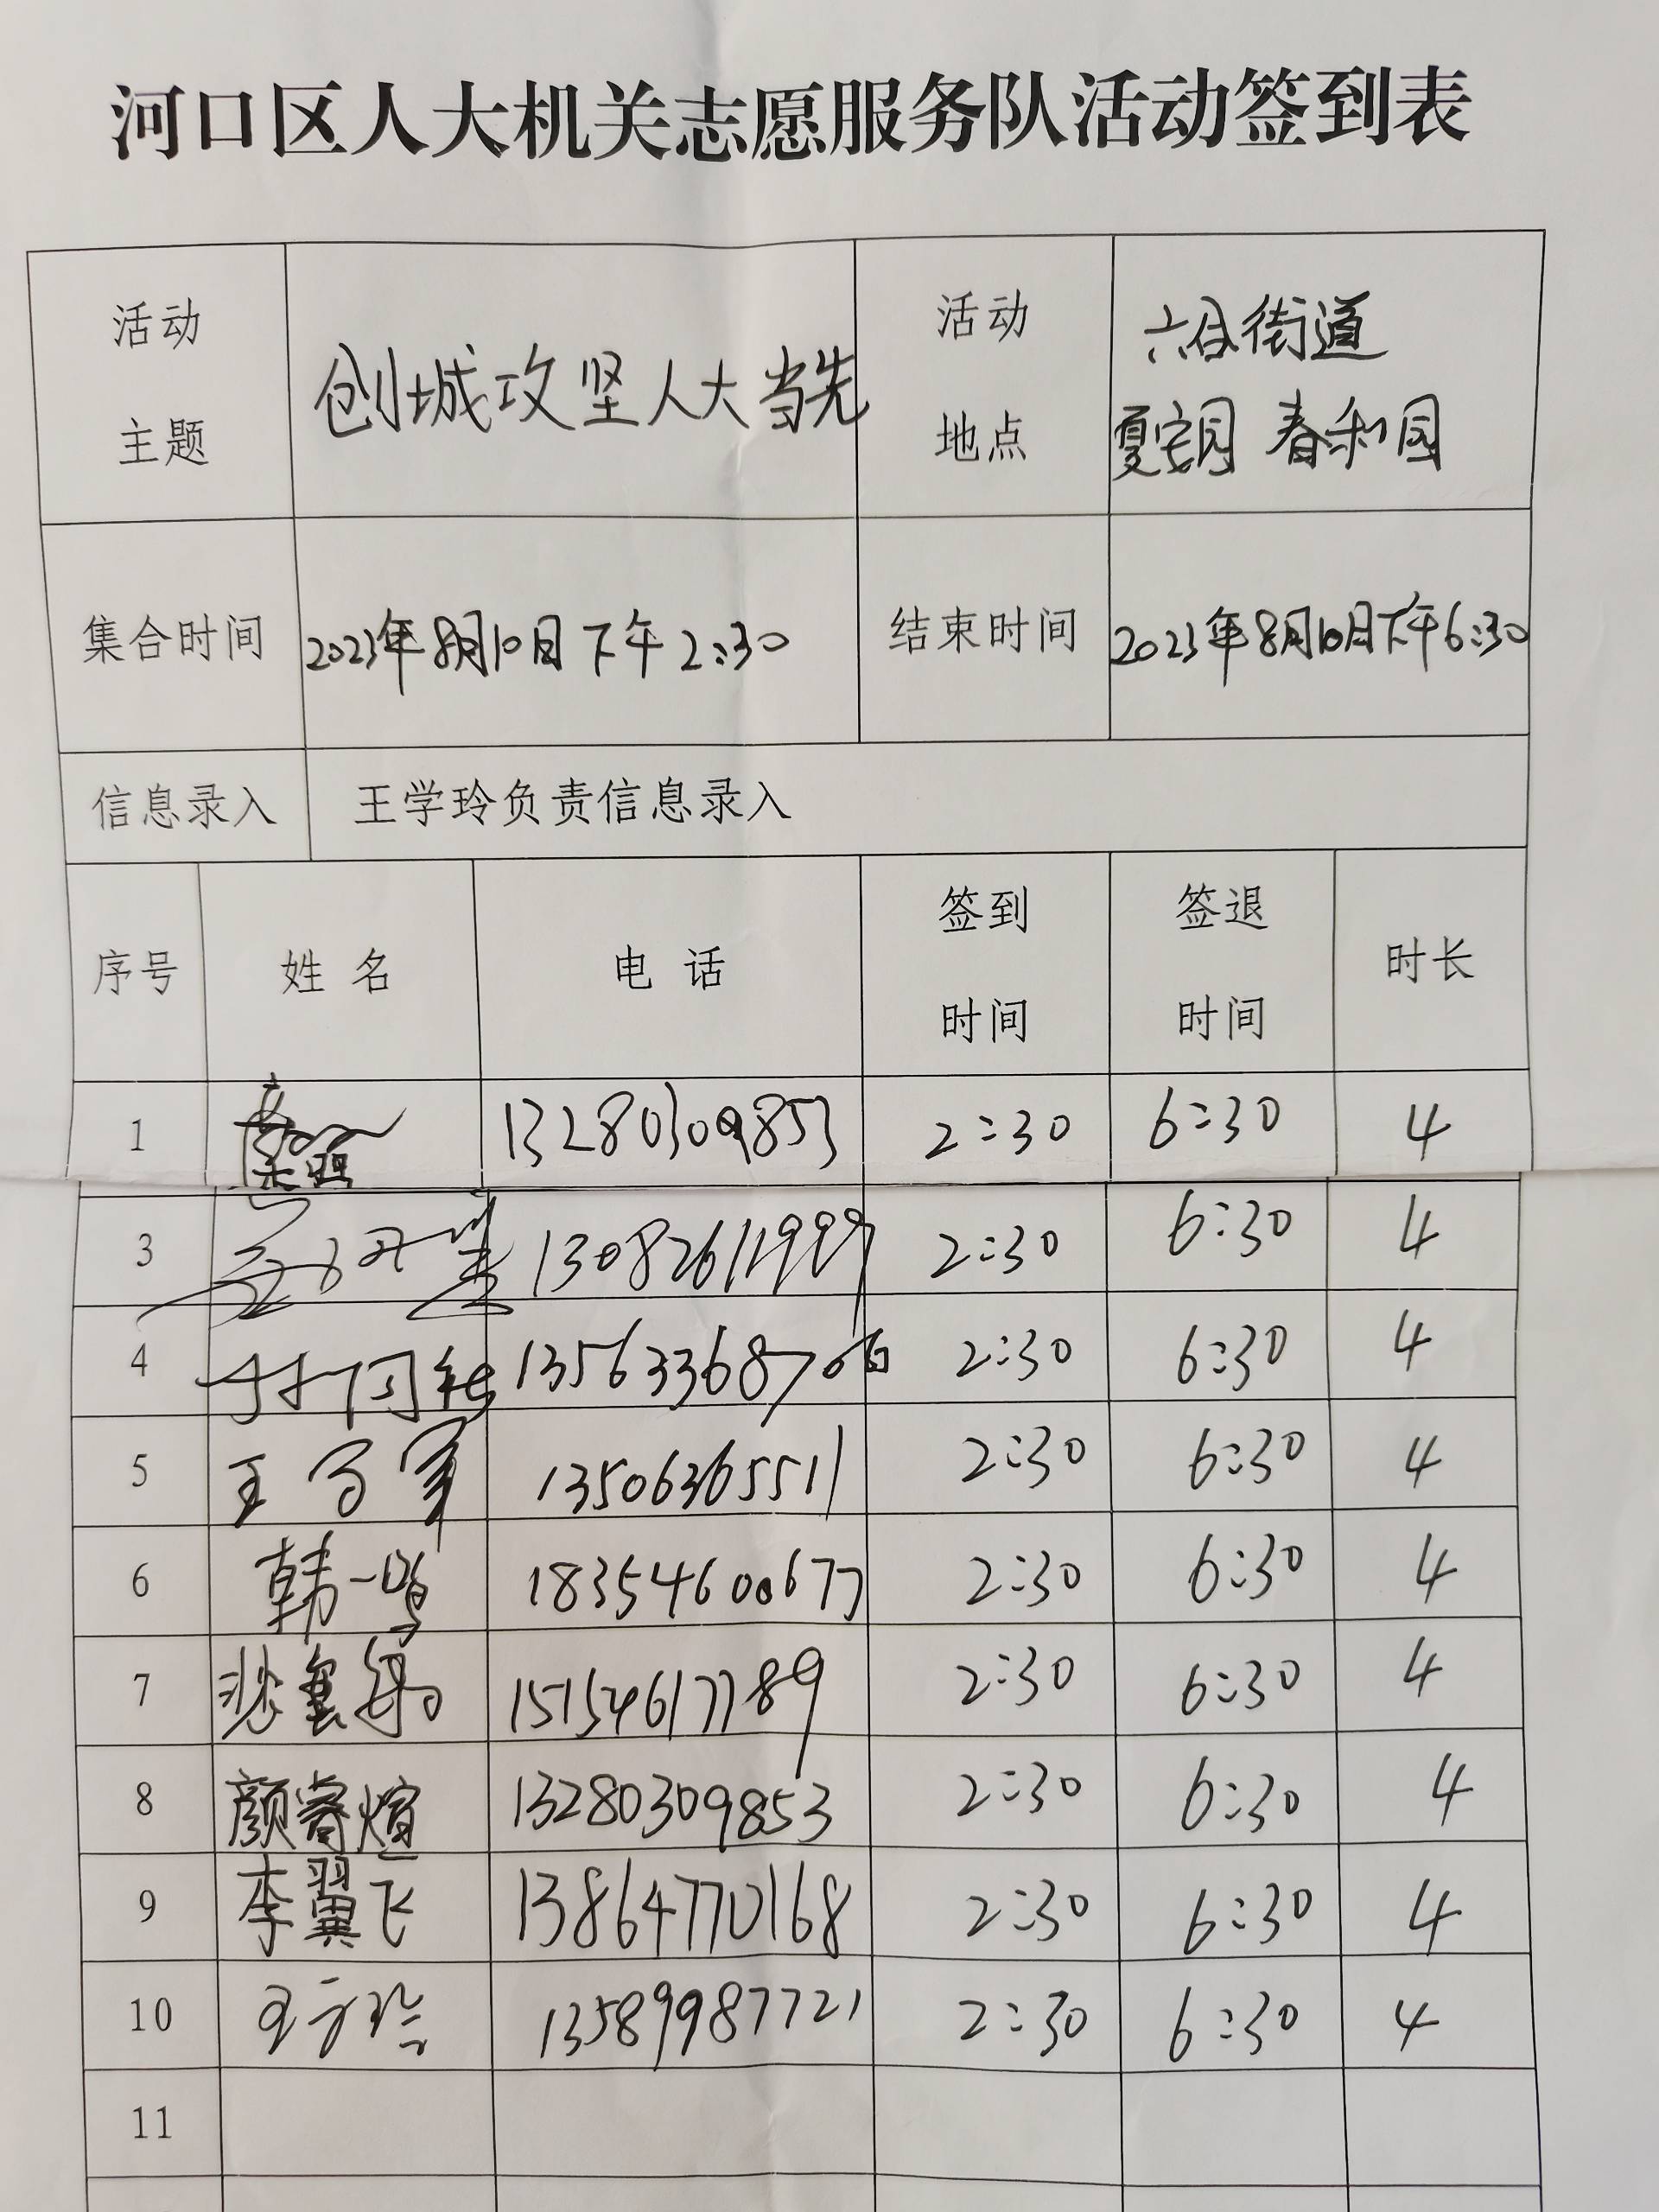 河口区人大机关志愿服务队活动签到表
活动主题 创城攻坚人大当先 活动地点 六合街道 春和园
集合时间 2023年8月10日下午2:30 结束时间 2023年8月10日下午6:30
信息录入 王学玲负责信息录入
序号 姓名 电话 签到时间 签退时间 时长
1 13280309853 2:30 6:30 4
3 13082611999 2:30 6:30 4
4 2:30 6:30 4
5 13506365511 2:30 6:30 4
6 韩一鸣 18354600677 2:30 6:30 4
7 15154617789 2:30 6:30 4
8 颜睿煊 13280309853 2:30 6:30 4
9 李翼飞 13864770168 2:30 6:30 4
10 王学玲 13589987721 2:30 6:30 4
11